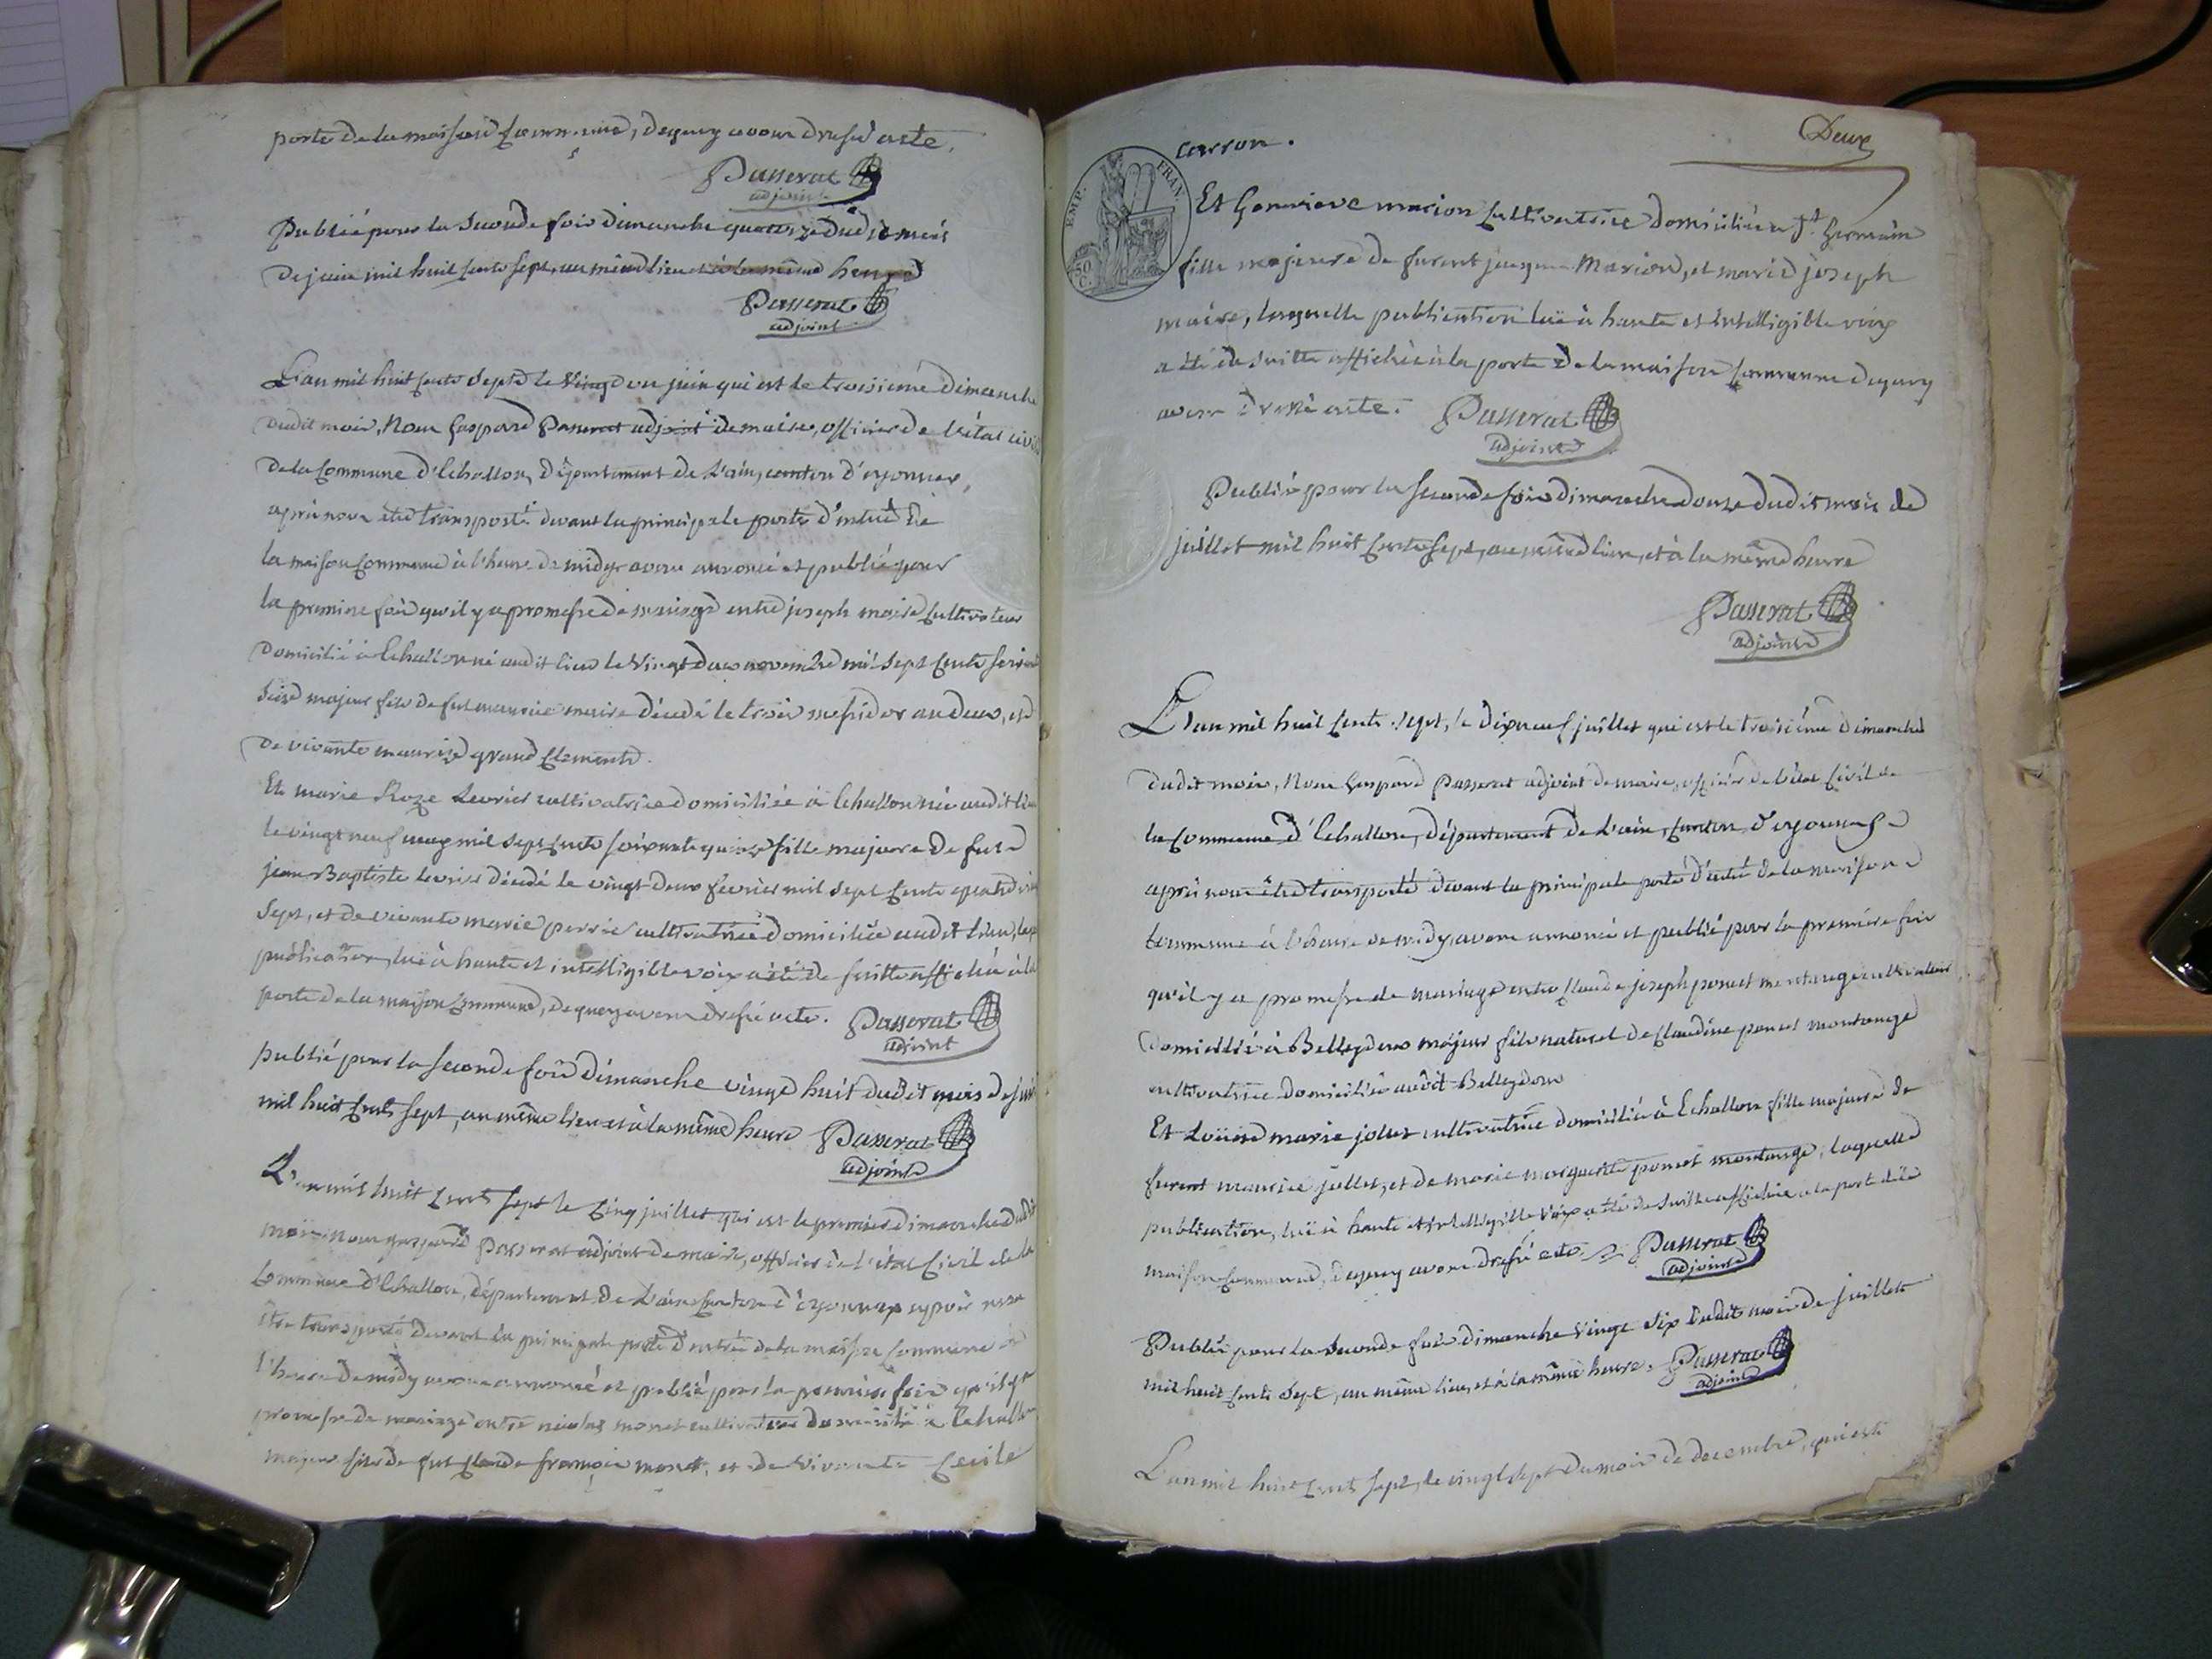 porte de la maison commune, dequoy avons dressé acte.
Passerat
adjoint
Publié pour la seconde fois dimanche quatorze dudit mois
de juin mil huit cents sept, au même lieu et à la même heure
Passerat
adjoint
L'an mil huit cents sept le vingt un juin qui est le troisieme dimanche
dudit mois, Nous Gaspard Passerat adjoint de maire, officier de l'état civil
de la Commune d'Echallon, département de l'ain, canton d'oyonnax,
après nous etre transporté devant la principale porte d'entrée de
la maison Commune à l'heure de midy avons annoncé et publié pour
la premiere fois qu'il y a promesse de mariage entre joseph maire Cultivateur
domicilié à Echallon né audit lieu le vingt deux novembre mil sept cents soixante
seize majeur fils de fut maurice maire décédé le trois messidor an deux, et
de vivante maurize grand Clement.
Et marie Roze Levrier cultivatrice domiciliée à Echallon née audit lieu
le vingt neuf may mil sept cents soixante quinze fille majeure de fut
jean Baptiste levrier décédé le vingt deux février mil sept cents quatre vingt
sept, et de vivante marie perrier cultivatrice domiciliée audit lieu,
publication, luë à haute et intelligible voix a été de suitte affichée à la
porte de la maison Commune, dequoy avons dressé acte. Passerat
adjoint
publié pour la seconde fois dimanche vingt huit dudit mois de juin
mil huit cents sept, au même lieu et à la même heure Passerat
adjoint
L'an mil huit cents sept le cinq juillet qui est le premier dimanche dudit
mois nous gaspard Passerat adjoint de maire, officier de l'état Civil de la
Commune d'Echallon, département de L'ain Canton d'oyonnax après nous
être transporté devant la principale porte d'entrée de la maison Commune à
l'heure de midy avons annoncé et publié pour la première fois qu'il y a
promesse de mariage entre nicolas monet cultivateur domicilié à Echallon
majeur fils de fut Claude françois monet, et de vivante Cecile
Deux
carron.
EMP. FRAN
50 C.
Et Genevieve marion Cultivatrice domiciliée a St. Germain
fille majeure de furent jacques Marion, et marie joseph
maire, laquelle publication luë à haute et intelligible voix
a été de suitte affichée à la porte de la maison Commune dequoy
avons dressé acte. Passerat
adjoint
Publié pour la seconde fois dimanche douze dudit mois de
juillet mil huit cents sept, au même lieu, et à la même heure
Passerat
adjoint
L'an mil huit cents sept, le dixneuf juillet qui est le troisième dimanche
dudit mois, Nous Gaspard Passerat adjoint de maire, officier de l'état Civil de
la Commune d'Echallon, département de L'ain, Canton d'oyonnax
après nous être transporté devant la principale porte d'entrée de la maison
Commune à l'heure de midy, avons annoncé et publié pour la première fois
qu'il y a promesse de mariage entre Claude joseph poncet montange cultivateur
domicilié à Belleydoux majeur fils naturel de Claudine poncet montange
cultivatrice domiciliée audit Belleydoux
Et Louise marie jollet cultivatrice domiciliée à Echallon fille majeure de
furent maurice jollet, et de marie marguerite poncet montange, laquelle
publication, luë à haute et intelligible voix a été de suitte affichée à la porte de la
maison Commune, dequoy avons dressé acte. Passerat
adjoint
Publié pour la seconde fois dimanche vingt six dudit mois de juillet
mil huit cents sept, au même lieu, et à la même heure. Passerat
adjoint
L'an mil huit cents sept, le vingt sept du mois de decembre, qui est